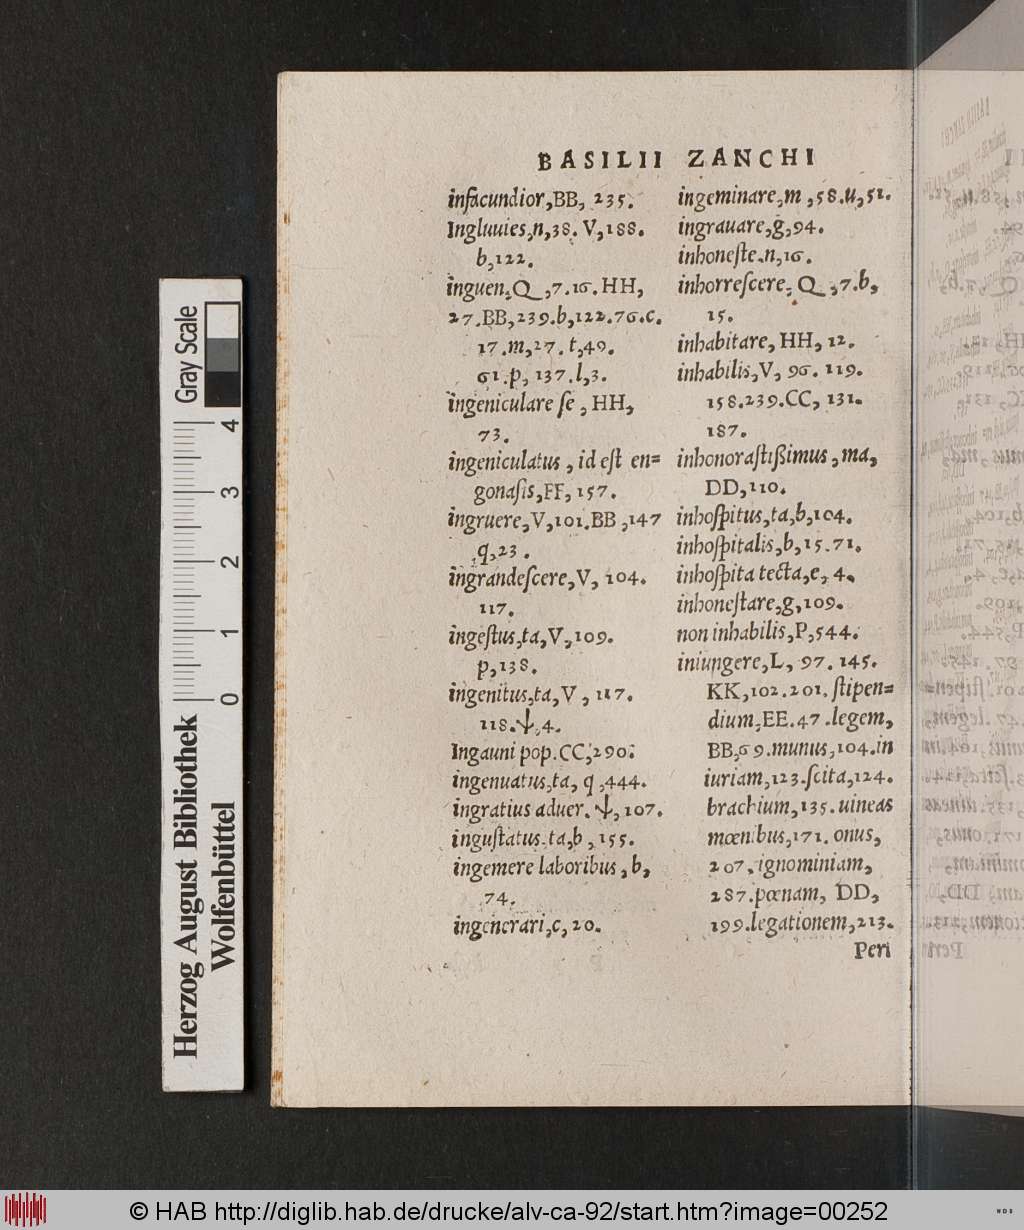 BASILII ZANCHI
infacundior,BB, 235.
Ingluuies,n,38. V,188.
b,122.
inguen,Q,7.16.HH,
27.BB,239.b,122.76.c.
17.m,27.t,49.
61.p, 137.l,3.
ingeniculare ſe, HH,
73.
ingeniculatus, id eſt en=
gonaſis,FF,157.
ingruere,V,101.BB,147
q,23.
ingrandeſcere,V, 104.
117.
ingeſtus,ta,V,109.
p,138.
ingenitus,ta,V, 117.
118.ψ,4.
Ingauni pop.CC,290.
ingenuatus,ta, q,444.
ingratius aduer.ψ,107.
inguſtatus.ta,b,155.
ingemere laboribus, b,
74.
ingenerari,c,20.
ingeminare,m,58.u,51.
ingrauare,g,94.
inhoneſte.n,16.
inhorreſcere, Q,7.b,
15.
inhabitare, HH, 12.
inhabilis,V, 96. 119.
158.239.CC, 131.
187.
inhonoraſtißimus, ma,
DD,110.
inhoſpitus,ta,b,104.
inhoſpitalis,b,15.71.
inhoſpita tecta,e, 4.
inhoneſtare,g,109.
non inhabilis,P,544.
iniungere,L, 97. 145.
KK,102.201. ſtipen=
dium,EE.47.legem,
BB,69.munus,104.in
iuriam,123.ſcita,124.
brachium,135.uineas
mœnibus,171. onus,
207. ignominiam,
287.pœnam, DD,
199.legationem,213.
Peri
Gray Scale
4
3
2
1
0
Herzog August Bibliothek
Wolfenbüttel
© HAB http://diglib.hab.de/drucke/alv-ca-92/start.htm?image=00252